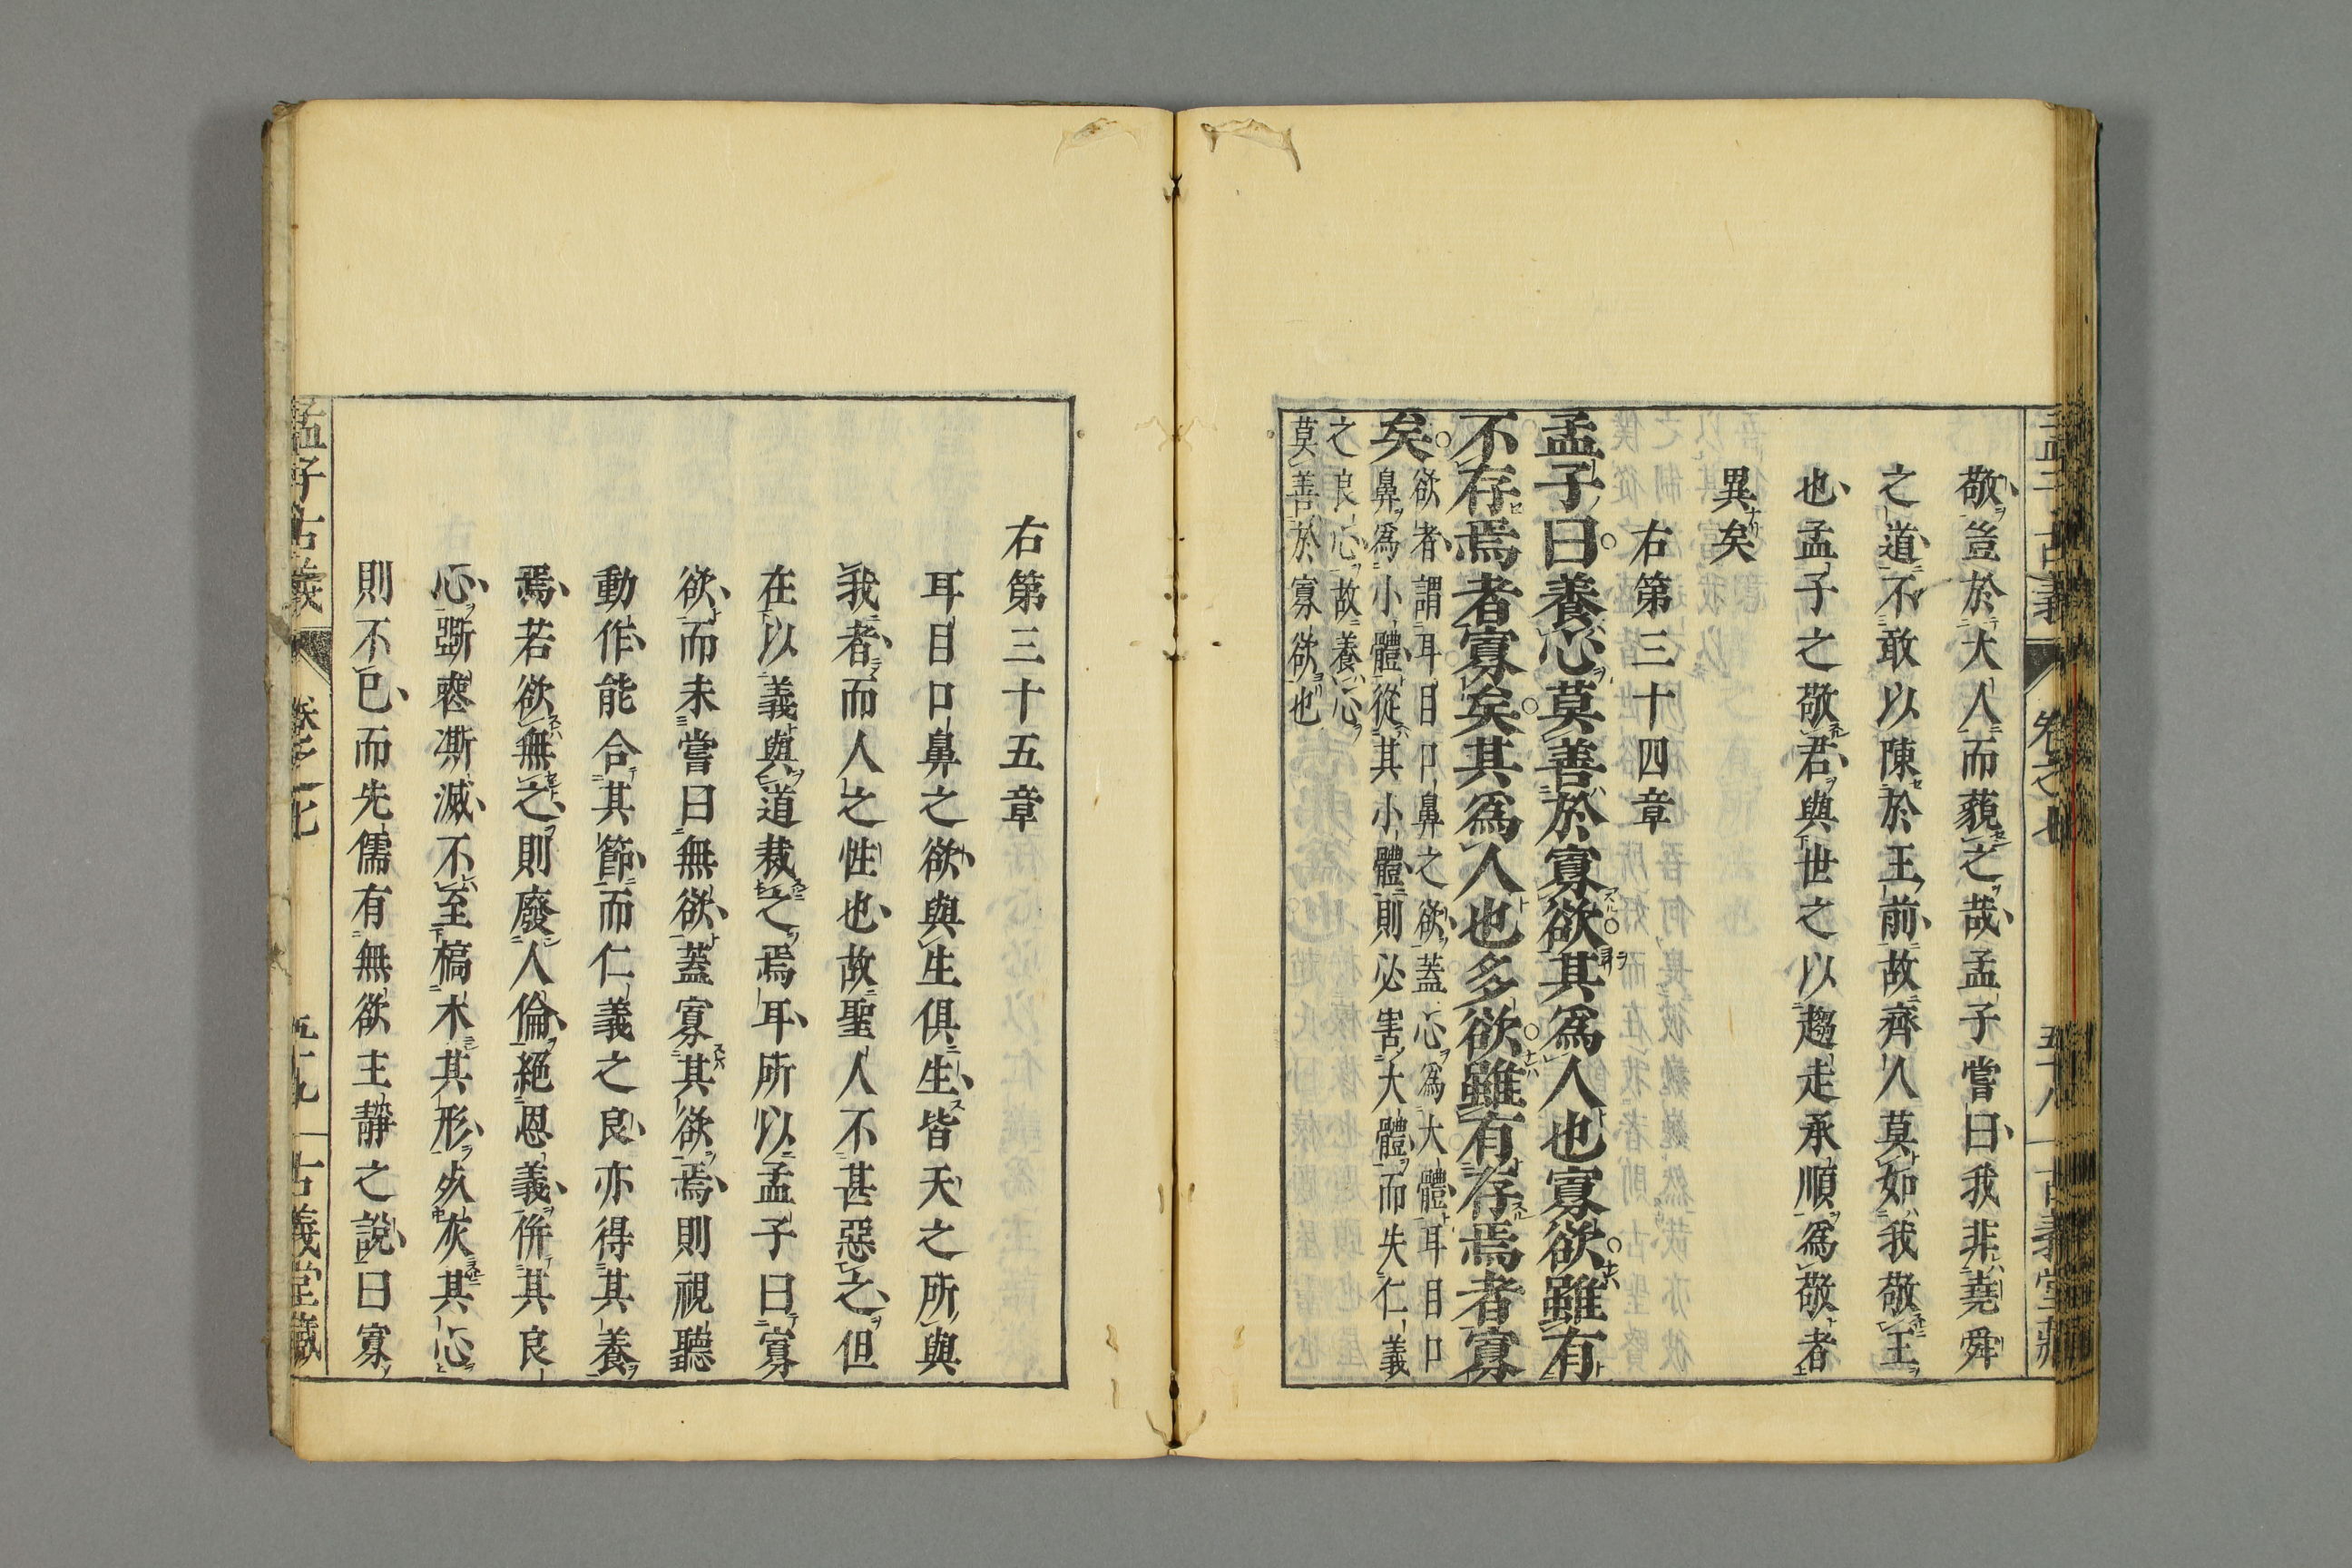 敬豈於大人而藐之哉孟子嘗曰我非堯舜
之道不敢以陳於王前故齊人莫如我敬王
也孟子之敬君與世之以趨走承順爲敬者
異矣
右第三十四章
孟子曰養心莫善於寡欲其爲人也寡欲雖有
不存焉者寡矣其爲人也多欲雖有存焉者寡
矣
欲者謂耳目口鼻之欲蓋心爲大體耳目口
鼻爲小體從其小體則必害大體而失仁義
之良心故養心
莫善於寡欲也
右第三十五章
耳目口鼻之欲與生俱生皆天之所與
我者而人之性也故聖人不甚惡之但
在以義與道裁之焉耳所以孟子曰寡
欲而未嘗曰無欲蓋寡其欲焉則視聽
動作能合其節而仁義之良亦得其養
焉若欲無之則廢人倫絕恩義併其良
心斲喪澌滅不至槁木其形死灰其心
則不已而先儒有無欲主靜之說曰寡
孟子古義
卷之七
五十九
古義堂藏